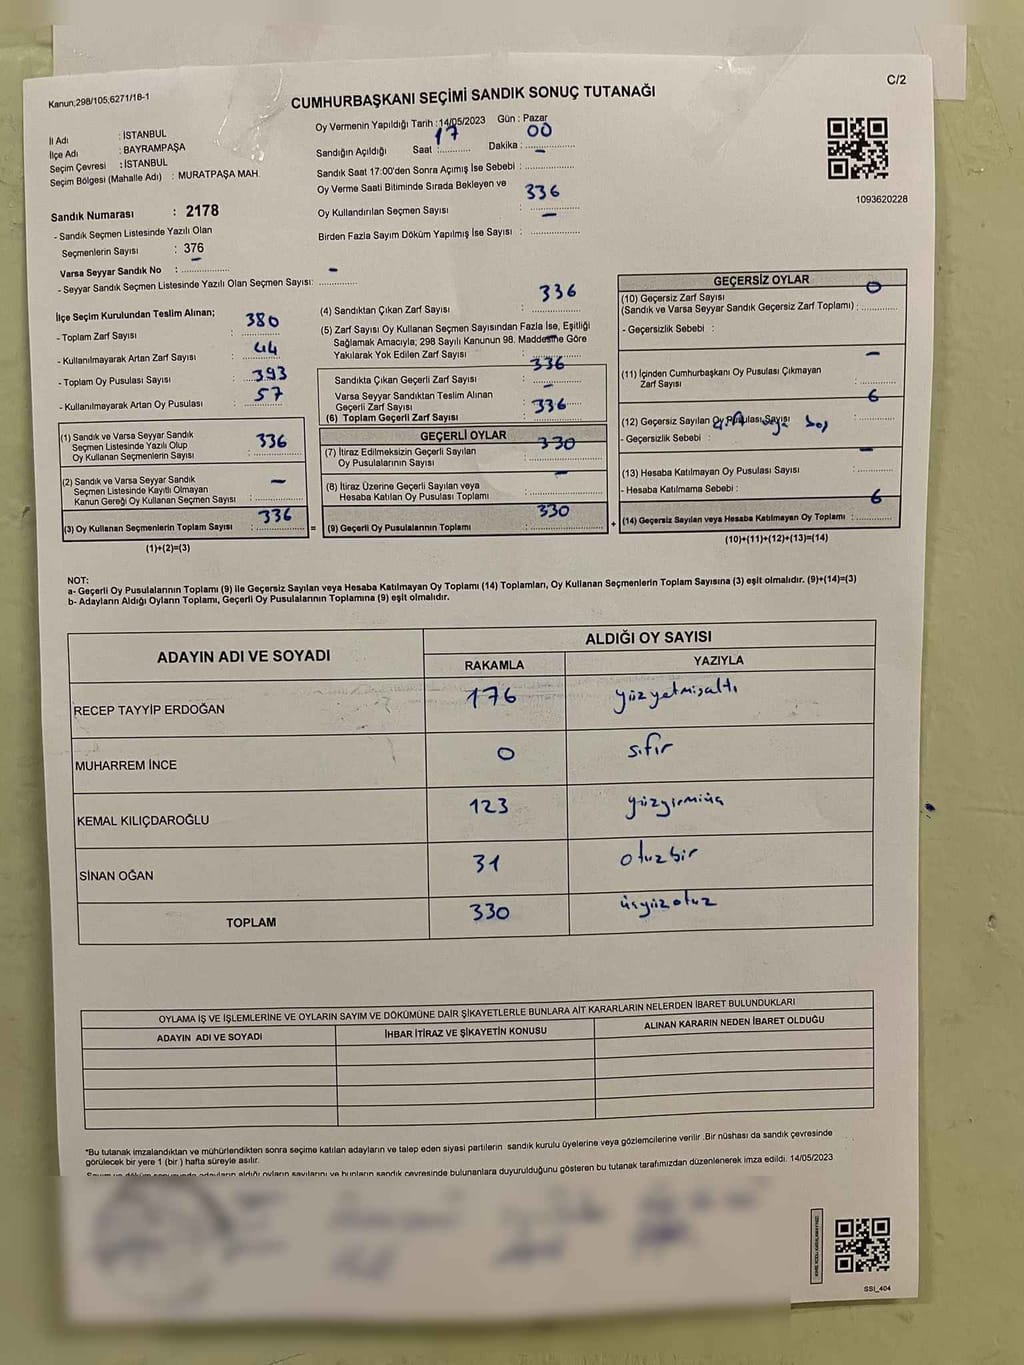 C/2
Kanun;298/105;6271/18-1
CUMHURBAŞKANI SEÇİMİ SANDIK SONUÇ TUTANAĞI
İl Adı : İSTANBUL
İlçe Adı : BAYRAMPAŞA
Seçim Çevresi : İSTANBUL
Seçim Bölgesi (Mahalle Adı) : MURATPAŞA MAH.
Sandık Numarası : 2178
- Sandık Seçmen Listesinde Yazılı Olan
Seçmenlerin Sayısı : 376
Varsa Seyyar Sandık No : –
- Seyyar Sandık Seçmen Listesinde Yazılı Olan Seçmen Sayısı: –
Oy Vermenin Yapıldığı Tarih : 14/05/2023 Gün : Pazar
Sandığın Açıldığı Saat : 17 Dakika : 00
Sandık Saat 17:00'den Sonra Açımış İse Sebebi : –
Oy Verme Saati Bitiminde Sırada Bekleyen ve
Oy Kullandırılan Seçmen Sayısı : 336
Birden Fazla Sayım Döküm Yapılmış İse Sayısı : –
1093620228
İlçe Seçim Kurulundan Teslim Alınan;
- Toplam Zarf Sayısı : 380
- Kullanılmayarak Artan Zarf Sayısı : 44
- Toplam Oy Pusulası Sayısı : 393
- Kullanılmayarak Artan Oy Pusulası : 57
(1) Sandık ve Varsa Seyyar Sandık
Seçmen Listesinde Yazılı Olup
Oy Kullanan Seçmenlerin Sayısı : 336
(2) Sandık ve Varsa Seyyar Sandık
Seçmen Listesinde Kayıtlı Olmayan
Kanun Gereği Oy Kullanan Seçmen Sayısı : –
(3) Oy Kullanan Seçmenlerin Toplam Sayısı : 336 =
(1)+(2)=(3)
(4) Sandıktan Çıkan Zarf Sayısı : 336
(5) Zarf Sayısı Oy Kullanan Seçmen Sayısından Fazla İse, Eşitliği
Sağlamak Amacıyla; 298 Sayılı Kanunun 98. Maddesine Göre
Yakılarak Yok Edilen Zarf Sayısı : –
Sandıkta Çıkan Geçerli Zarf Sayısı : 336
Varsa Seyyar Sandıktan Teslim Alınan
Geçerli Zarf Sayısı : –
(6) Toplam Geçerli Zarf Sayısı : 336
GEÇERLİ OYLAR
(7) İtiraz Edilmeksizin Geçerli Sayılan
Oy Pusulalarının Sayısı : 330
(8) İtiraz Üzerine Geçerli Sayılan veya
Hesaba Katılan Oy Pusulası Toplamı : –
(9) Geçerli Oy Pusulalarının Toplamı : 330 +
GEÇERSİZ OYLAR
(10) Geçersiz Zarf Sayısı
(Sandık ve Varsa Seyyar Sandık Geçersiz Zarf Toplamı) : 0
- Geçersizlik Sebebi :
(11) İçinden Cumhurbaşkanı Oy Pusulası Çıkmayan
Zarf Sayısı : –
(12) Geçersiz Sayılan Oy Pusulası Sayısı : 6
- Geçersizlik Sebebi : boş
(13) Hesaba Katılmayan Oy Pusulası Sayısı : –
- Hesaba Katılmama Sebebi :
(14) Geçersiz Sayılan veya Hesaba Katılmayan Oy Toplamı : 6
(10)+(11)+(12)+(13)=(14)
NOT:
a- Geçerli Oy Pusulalarının Toplamı (9) ile Geçersiz Sayılan veya Hesaba Katılmayan Oy Toplamı (14) Toplamları, Oy Kullanan Seçmenlerin Toplam Sayısına (3) eşit olmalıdır. (9)+(14)=(3)
b- Adayların Aldığı Oyların Toplamı, Geçerli Oy Pusulalarının Toplamına (9) eşit olmalıdır.
ADAYIN ADI VE SOYADI ALDIĞI OY SAYISI
RAKAMLA YAZIYLA
RECEP TAYYİP ERDOĞAN 176 yüzyetmişaltı
MUHARREM İNCE 0 sıfır
KEMAL KILIÇDAROĞLU 123 yüzyirmiüç
SİNAN OĞAN 31 otuzbir
TOPLAM 330 üçyüzotuz
OYLAMA İŞ VE İŞLEMLERİNE VE OYLARIN SAYIM VE DÖKÜMÜNE DAİR ŞİKAYETLERLE BUNLARA AİT KARARLARIN NELERDEN İBARET BULUNDUKLARI
ADAYIN ADI VE SOYADI İHBAR İTİRAZ VE ŞİKAYETİN KONUSU ALINAN KARARIN NEDEN İBARET OLDUĞU
*Bu tutanak imzalandıktan ve mühürlendikten sonra seçime katılan adayların ve talep eden siyasi partilerin sandık kurulu üyelerine veya gözlemcilerine verilir .Bir nüshası da sandık çevresinde
görülecek bir yere 1 (bir ) hafta süreyle asılır.
Sayım ve döküm sonucunda adayların aldığı oyların sayılarını ve bunların sandık çevresinde bulunanlara duyurulduğunu gösteren bu tutanak tarafımızdan düzenlenerek imza edildi. 14/05/2023
SSI_404